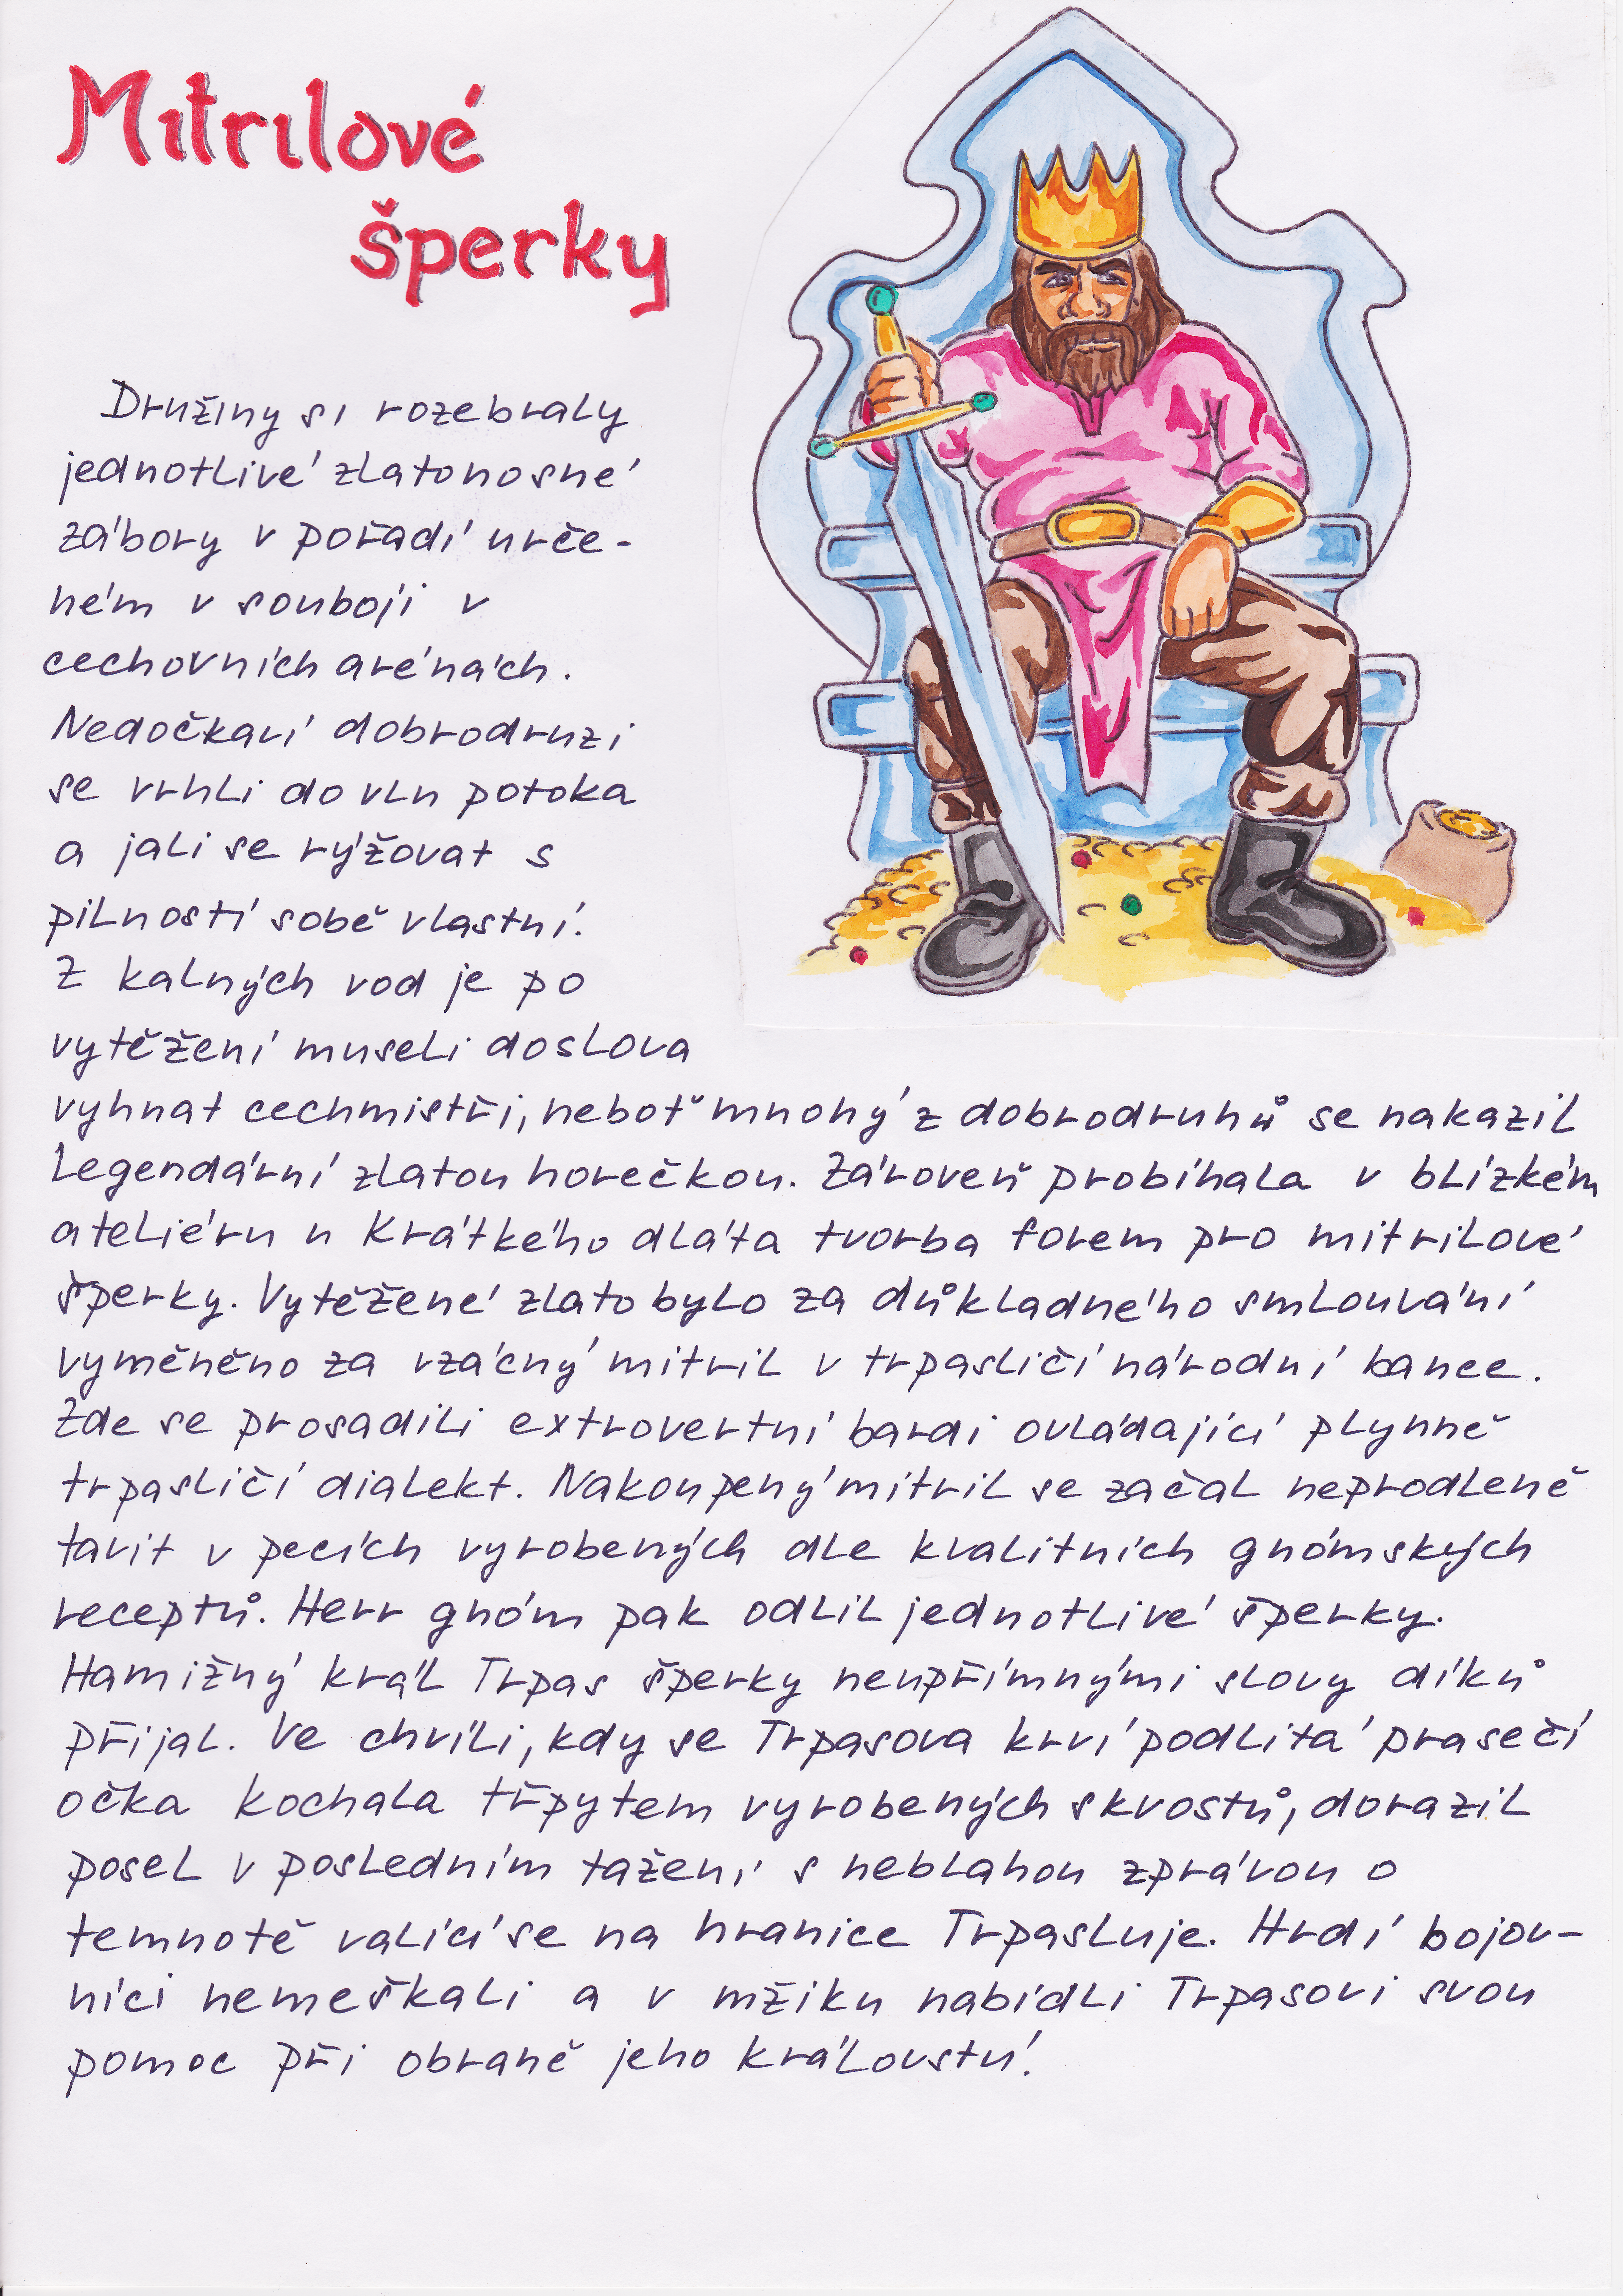 Mitrilové
šperky
Družiny si rozebraly
jednotlivé zlatonosné
zábory v pořadí urče-
ném v souboji v
cechovních arénách.
Nedočkaví dobrodruzi
se vrhli do vln potoka
a jali se rýžovat s
pilností sobě vlastní.
Z kalných vod je po
vytěžení museli doslova
vyhnat cechmistři, neboť mnohý z dobrodruhů se nakazil
legendární zlatou horečkou. Zároveň probíhala v blízkém
ateliéru u Krátkého dláta tvorba forem pro mitrilové
šperky. Vytěžené zlato bylo za důkladného smlouvání
vyměněno za vzácný mitril v trpasličí národní bance.
Zde se prosadili extrovertní bardi ovládající plynně
trpasličí dialekt. Nakoupený mitril se začal neprodleně
tavit v pecích vyrobených dle kvalitních gnómských
receptů. Herr gnóm pak odlil jednotlivé šperky.
Hamižný král Trpas šperky neupřímnými slovy díků
přijal. Ve chvíli, kdy se Trpasova krví podlitá prasečí
očka kochala třpytem vyrobených skvostů, dorazil
posel v posledním tažení s neblahou zprávou o
temnotě valící se na hranice Trpasluje. Hrdí bojov-
níci nemeškali a v mžiku nabídli Trpasovi svou
pomoc při obraně jeho království.